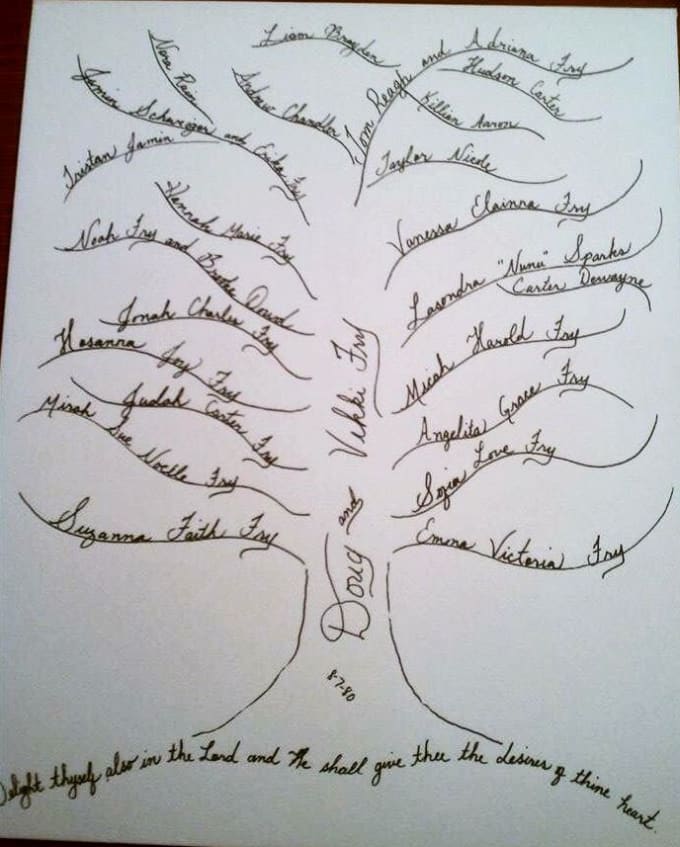 Liam Brayden
Nora Rain
Andrew Chandler
Tom Reagh and Adriana Fry
Hudson Carter
Killian Aaron
Taylor Nicole
Jamin and Fry
Tristan Jamin
Hannah Marie Fry
Noah Fry and
Jonah Charles Fry
Hosanna Joy Fry
Judah Carter Fry
Mirah Sue Noelle Fry
Suzanna Faith Fry
Vanessa Elainna Fry
Lasondra "Nunu" Sparks
Carter Dewayne
Micah Harold Fry
Angelita Grace Fry
Love Fry
Emma Victoria Fry
Doug and Vikki Fry
8-7-80
Delight thyself also in the Lord and He shall give thee the desires of thine heart.